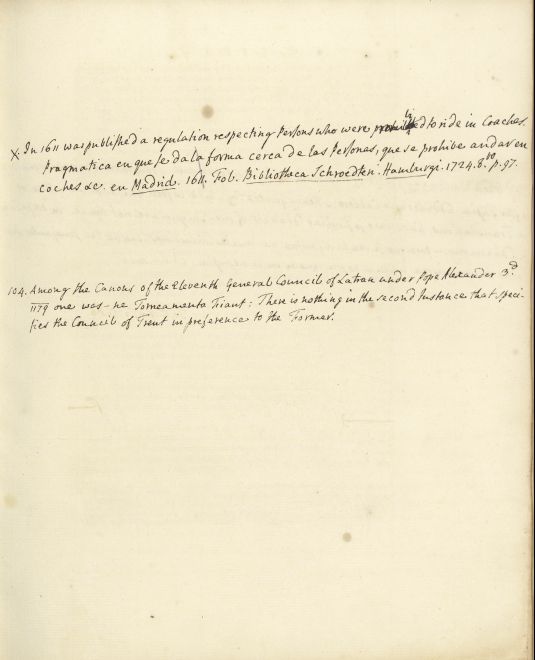 X In 1611 was published a regulation respecting Persons who were prohibited to ride in Coaches.
Pragmatica en que se da la forma cerca de las Personas, que se prohibe andar en
coches &c. en Madrid. 1611. Fol. Bibliotheca Schroedten. Hamburgi. 1724. 8.vo p. 97.
104. Among the Canons of the Eleventh General Council of Latran under Pope Alexander 3.d
1179 one was – ne Torneamenta Fiant: There is nothing in the second Instance that speci-
fies the Council of Trent in preference to the Former.